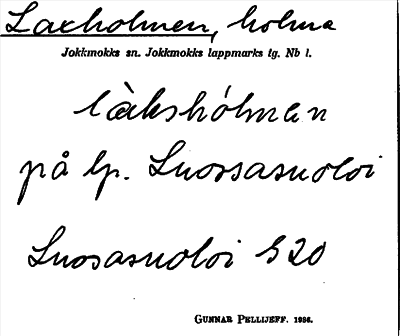 Laxholmen, holma
Jokkmokks sn. Jokkmokks lappmarks tg. Nb l.
làkshólman
på lp. Luossasuoloi
Luosasuoloi S 20
GUNNAR PELLIJEFF. 1986.